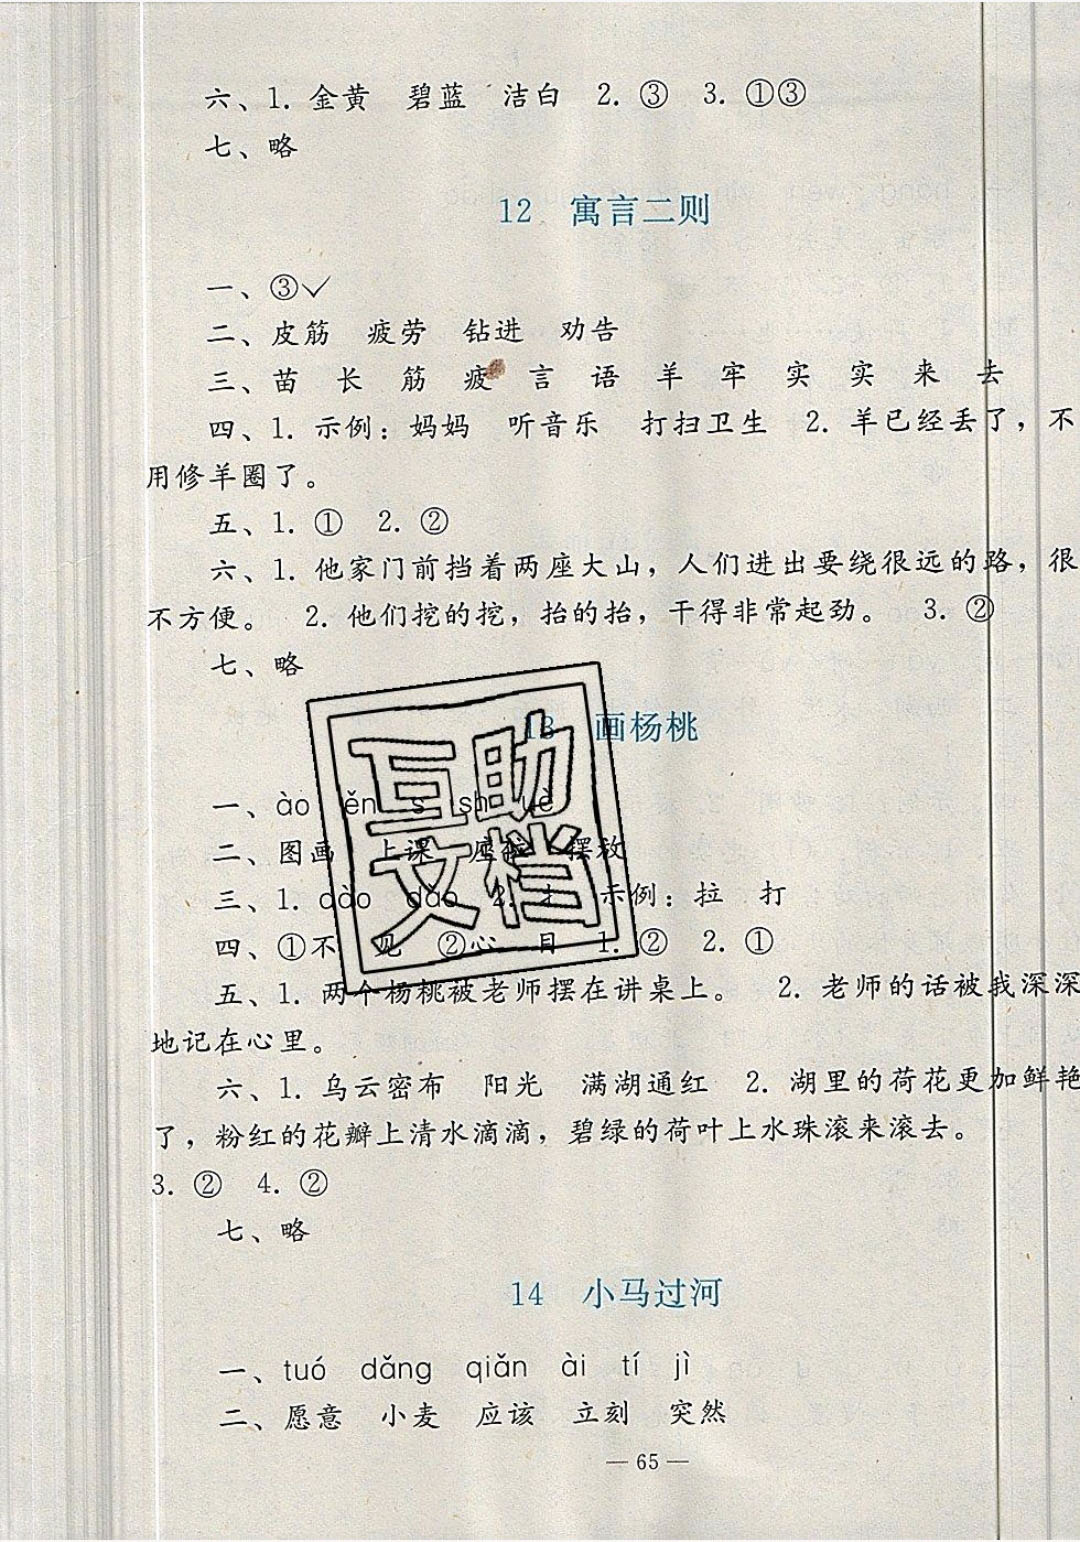 六、1. 金黄 碧蓝 洁白 2. ③ 3. ①③
七、略
12 寓言二则
一、③✓
二、皮筋 疲劳 钻进 劝告
三、苗 长 筋 疲 言 语 羊 牢 实 实 来 去
四、1. 示例：妈妈 听音乐 打扫卫生 2. 羊已经丢了，不
用修羊圈了。
五、1. ① 2. ②
六、1. 他家门前挡着两座大山，人们进出要绕很远的路，很
不方便。 2. 他们挖的挖，抬的抬，干得非常起劲。 3. ②
七、略
13 画杨桃
互助
文档
一、ào ěn s sh uè
二、图画 上课 座 摆放
三、1. dào dǎo 2. 扌 示例：拉 打
四、①不 见 ②心 目 1. ② 2. ①
五、1. 两个杨桃被老师摆在讲桌上。 2. 老师的话被我深深
地记在心里。
六、1. 乌云密布 阳光 满湖通红 2. 湖里的荷花更加鲜艳
了，粉红的花瓣上清水滴滴，碧绿的荷叶上水珠滚来滚去。
3. ② 4. ②
七、略
14 小马过河
一、tuó dǎng qiǎn ài tí jì
二、愿意 小麦 应该 立刻 突然
— 65 —